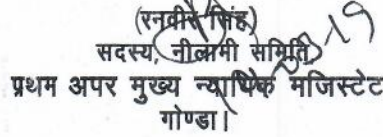 (रनवीर सिंह)
सदस्य, नीलामी समिति,
प्रथम अपर मुख्य न्यायिक मजिस्टेट
गोण्डा।